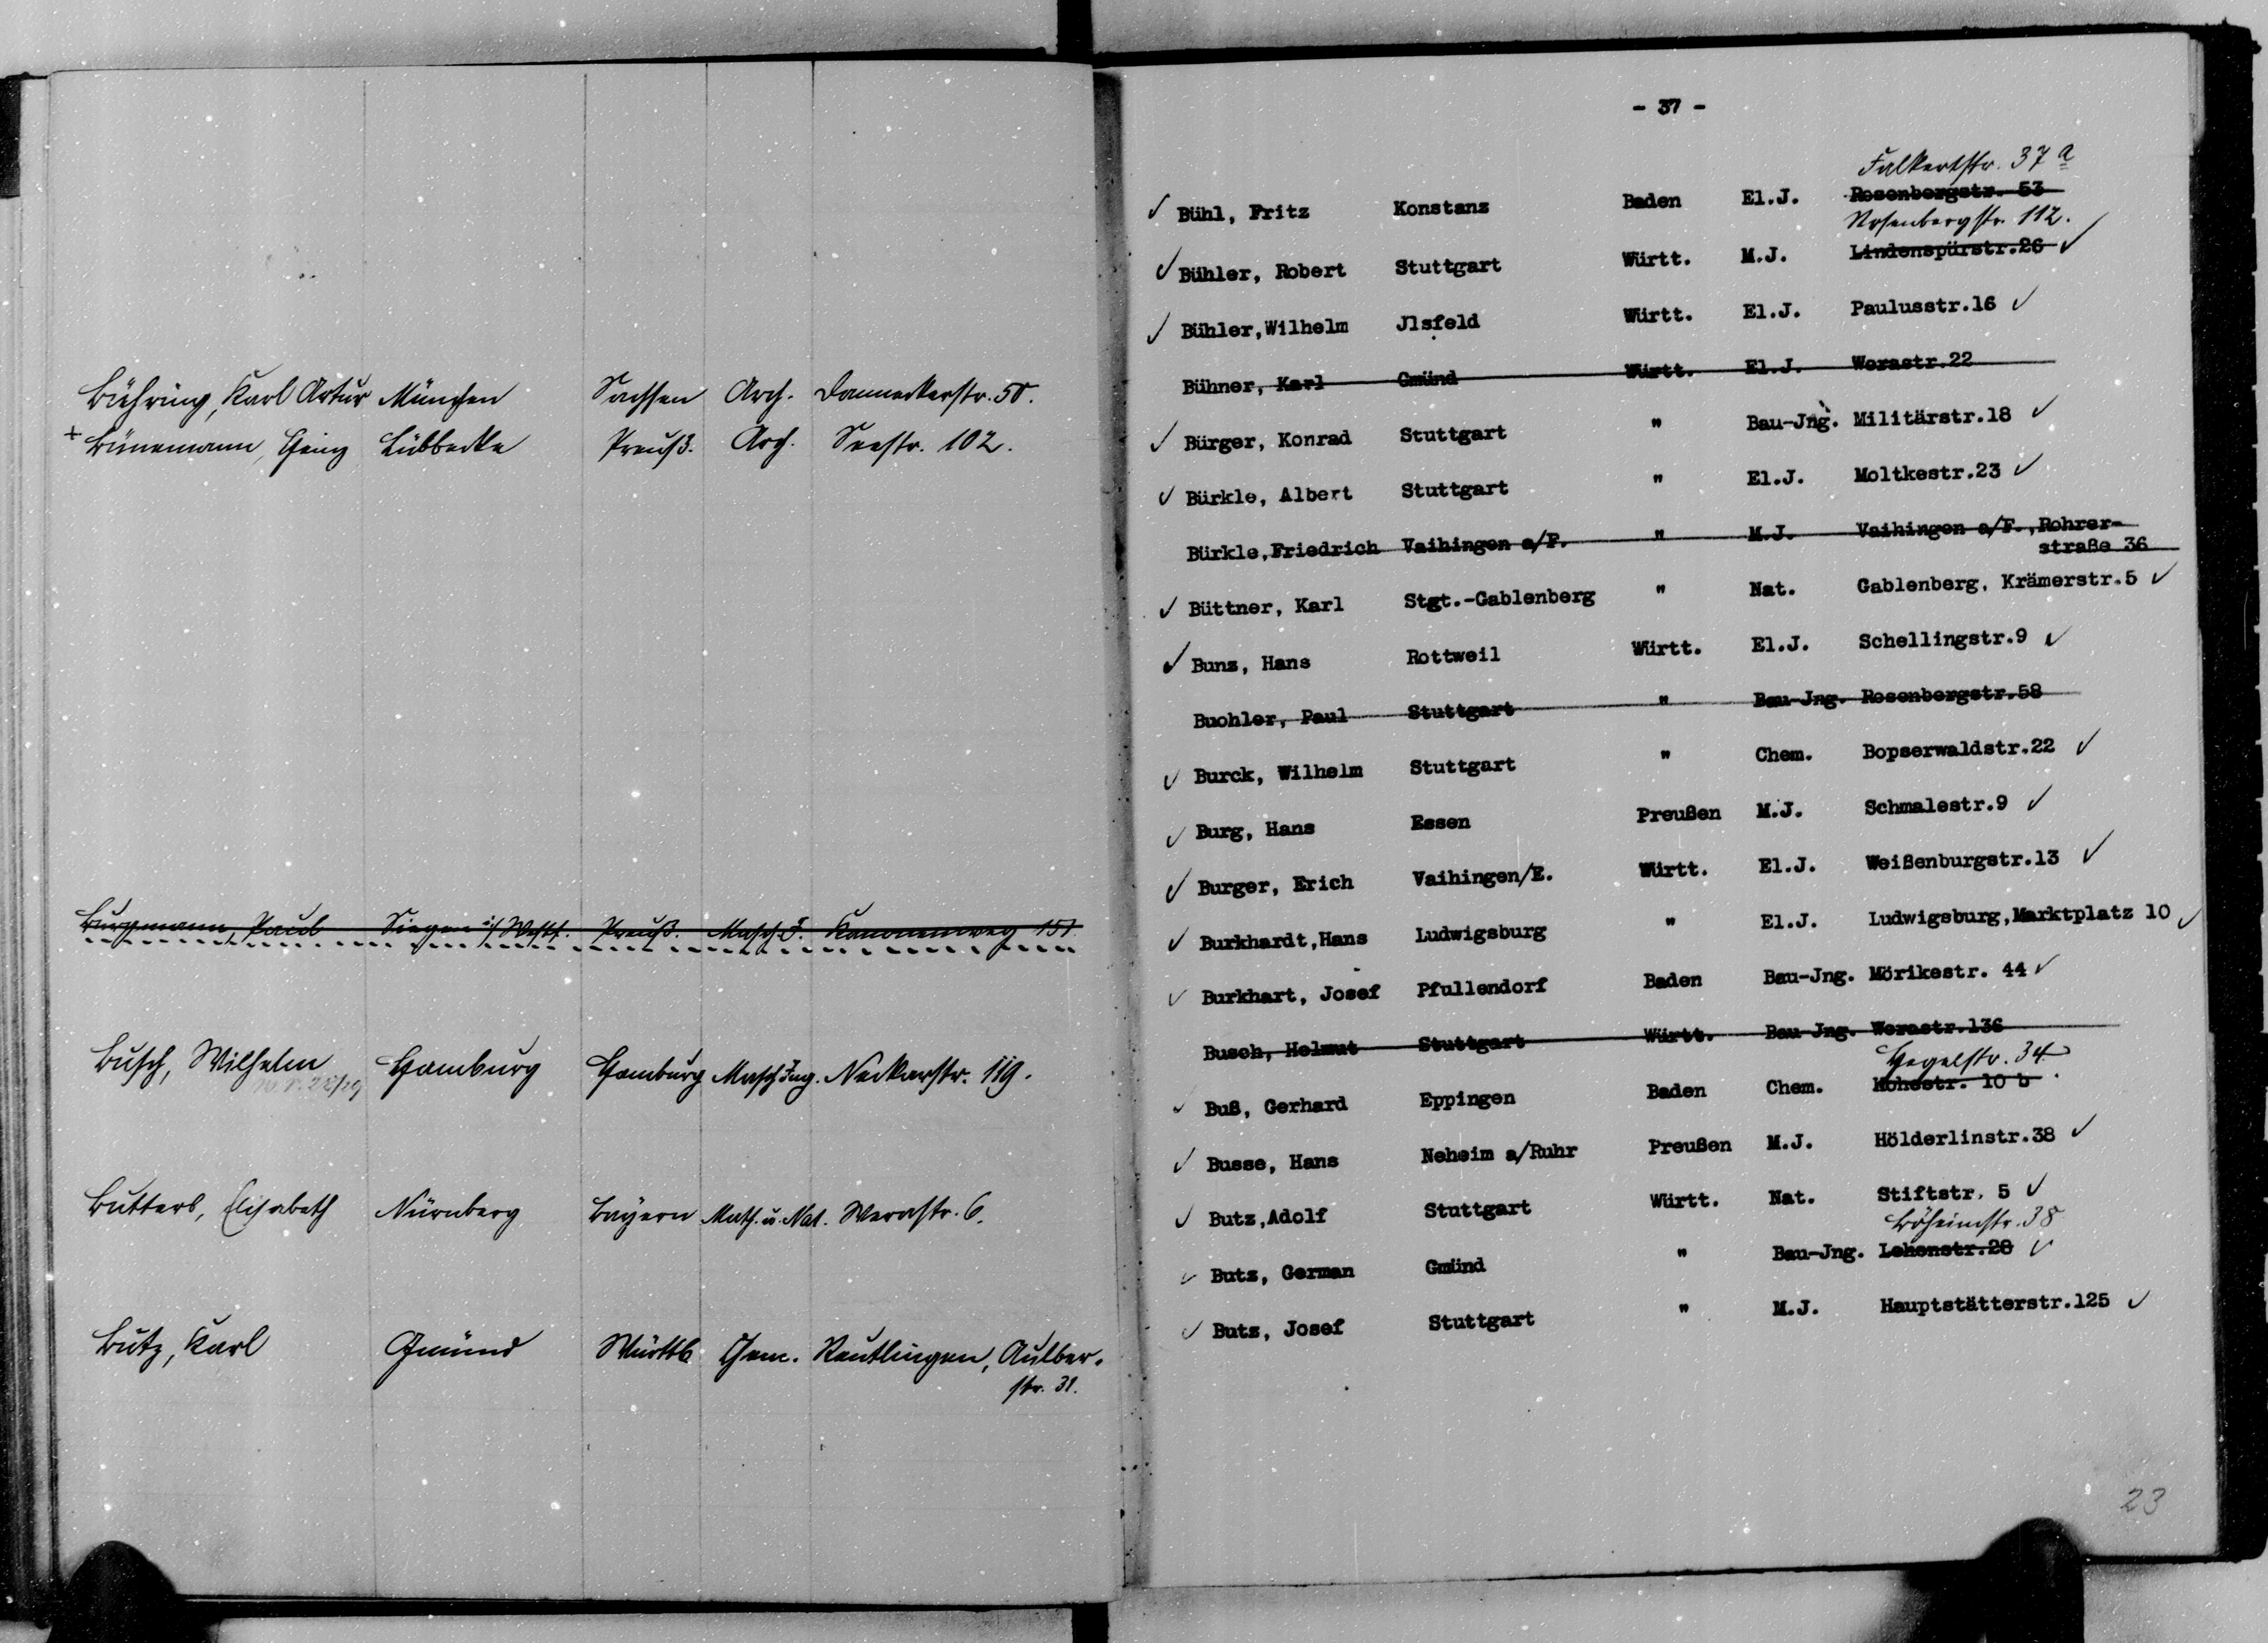 Bühring, Karl Artur München Sachsen Arch. Danneckerstr. 50.
+ Bünemann, Heinz Lübbecke Preuß. Arch. Seestr. 102.
Burgmann, Paul Siegen i/Westf. Preuß. Masch.J. Kanonenweg 151
Busch, Wilhelm Hamburg Hamburg Masch Ing. Neckarstr. 119.
Butterb, Elisabeth Nürnberg Bayern Math. u. Nat. Werastr. 6.
Butz, Karl Gmünd Württb Chem. Reutlingen, Aulber-
str. 31.
- 37 -
Falkertstr. 37 a
✓ Bühl, Fritz Konstanz Baden El.J. Rosenbergstr. 53
Rosenbergstr. 112.
✓ Bühler, Robert Stuttgart Württ. M.J. Lindenspürstr.26 ✓
✓ Bühler,Wilhelm Jlsfeld Württ. El.J. Paulusstr.16 ✓
Bühner, Karl Gmünd Württ. El.J. Werastr.22
✓ Bürger, Konrad Stuttgart " Bau-Jng. Militärstr.18 ✓
✓ Bürkle, Albert Stuttgart " El.J. Moltkestr.23 ✓
Bürkle,Friedrich Vaihingen a/F. " M.J. Vaihingen a/F.,Rohrer-
straße 36
✓ Büttner, Karl Stgt.-Gablenberg " Nat. Gablenberg, Krämerstr.5 ✓
✓ Bunz, Hans Rottweil Württ. El.J. Schellingstr.9 ✓
Buohler, Paul Stuttgart " Bau-Jng. Rosenbergstr.58
✓ Burck, Wilhelm Stuttgart " Chem. Bopserwaldstr.22 ✓
✓ Burg, Hans Essen Preußen M.J. Schmalestr.9 ✓
✓ Burger, Erich Vaihingen/E. Württ. El.J. Weißenburgstr.13 ✓
✓ Burkhardt,Hans Ludwigsburg " El.J. Ludwigsburg,Marktplatz 10 ✓
✓ Burkhart, Josef Pfullendorf Baden Bau-Jng. Mörikestr. 44 ✓
Busch, Helmut Stuttgart Württ. Bau-Jng. Werastr.136
Hegelstr. 34
✓ Buß, Gerhard Eppingen Baden Chem. Hohestr. 10 b
✓ Busse, Hans Neheim a/Ruhr Preußen M.J. Hölderlinstr.38 ✓
✓ Butz,Adolf Stuttgart Württ. Nat. Stiftstr. 5 ✓
Böheimstr. 38
✓ Butz, German Gmünd " Bau-Jng. Lehenstr.28 ✓
✓ Butz, Josef Stuttgart " M.J. Hauptstätterstr.125 ✓
23